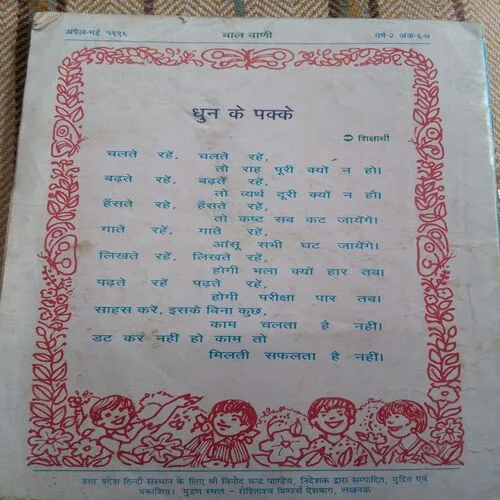 अप्रैल-मई १९९६
बाल वाणी
वर्ष-२ अंक-६-७
धुन के पक्के
शिक्षार्थी
चलते रहें, चलते रहें,
तो राह पूरी क्यों न हो।
बढ़ते रहें, बढ़ते रहें,
तो व्यर्थ दूरी क्यों न हो।
हँसते रहे, हँसते रहें,
तो कष्ट सब कट जायेंगे।
गाते रहें, गाते रहें,
आंसू सभी घट जायेंगे।
लिखते रहें, लिखते रहें,
होगी भला क्यों हार तब।
पढ़ते रहें पढ़ते रहें,
होगी परीक्षा पार तब।
साहस करें, इसके बिना कुछ,
काम चलता है नहीं।
डट कर नहीं हो काम तो
मिलती सफलता है नहीं।
उत्तर प्रदेश हिन्दी संस्थान के लिए श्री विनोद चन्द्र पाण्डेय, निदेशक द्वारा सम्पादित, मुद्रित एवं
प्रकाशित। मुद्रण स्थल - रोहिताश्व प्रिण्टर्स ऐशबाग, लखनऊ